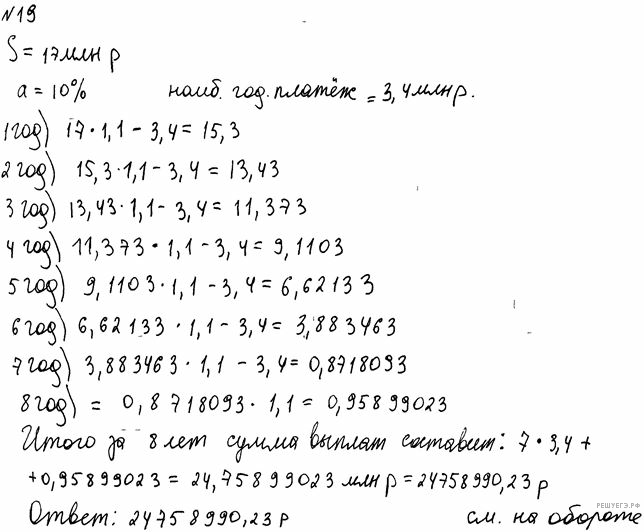 №19
S = 17 млн р
a = 10% наиб. год. платёж = 3,4 млн р.
1 год) 17 · 1,1 - 3,4 = 15,3
2 год) 15,3 · 1,1 - 3,4 = 13,43
3 год) 13,43 · 1,1 - 3,4 = 11,373
4 год) 11,373 · 1,1 - 3,4 = 9,1103
5 год) 9,1103 · 1,1 - 3,4 = 6,62133
6 год) 6,62133 · 1,1 - 3,4 = 3,883463
7 год) 3,883463 · 1,1 - 3,4 = 0,8718093
8 год) = 0,8718093 · 1,1 = 0,95899023
Итого за 8 лет сумма выплат составит: 7 · 3,4 +
+ 0,95899023 = 24,75899023 млн р = 24758990,23 р
Ответ: 24758990,23 р см. на обороте
РЕШУЕГЭ.РФ